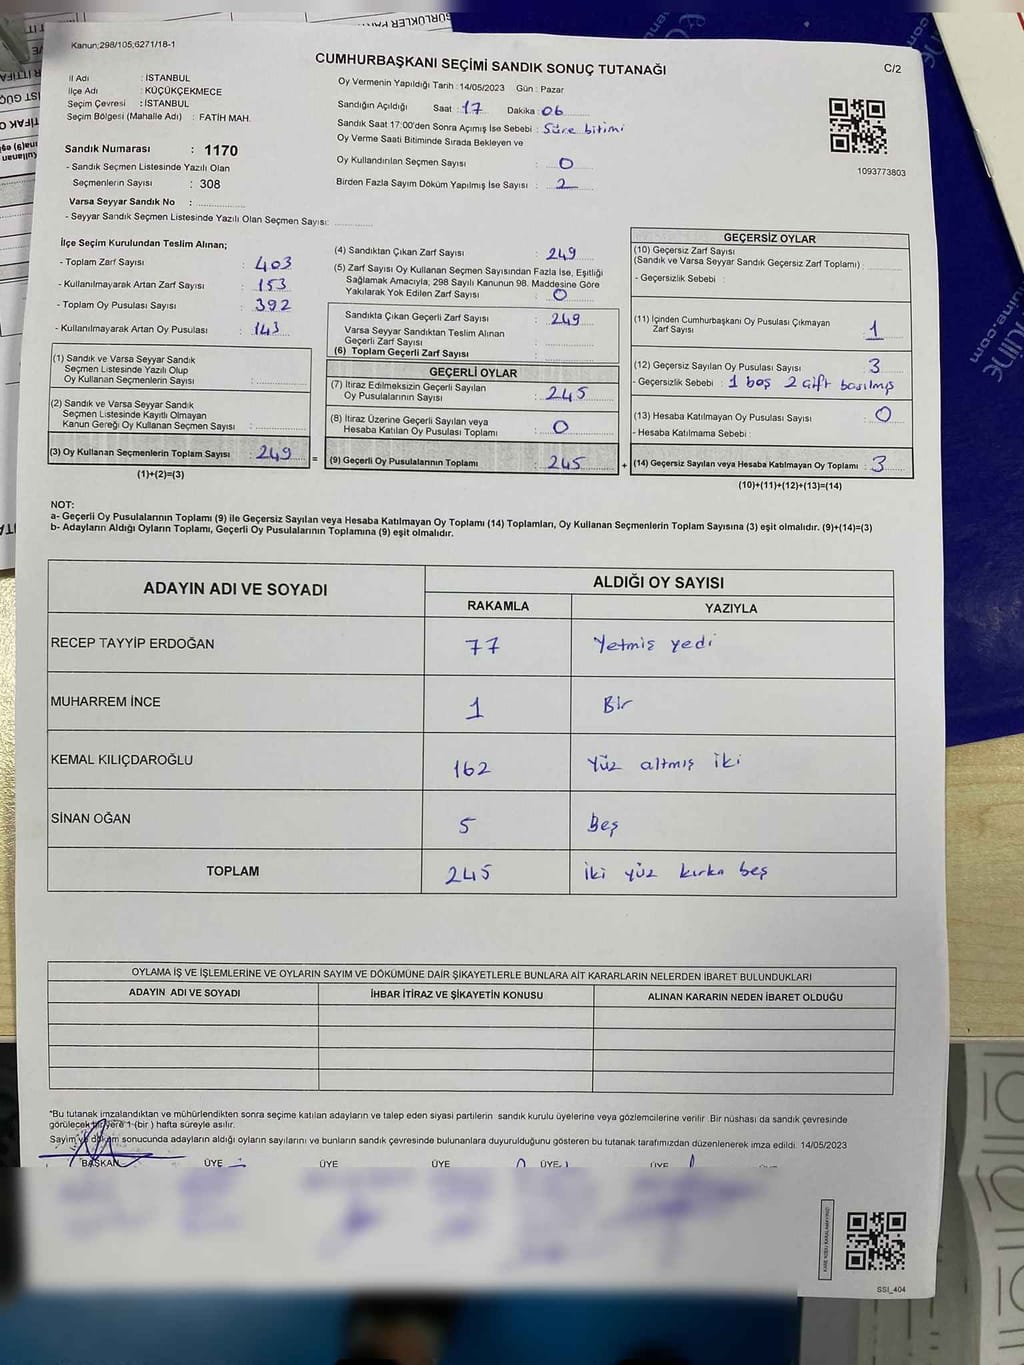 Kanun;298/105;6271/18-1
CUMHURBAŞKANI SEÇİMİ SANDIK SONUÇ TUTANAĞI
C/2
İl Adı : İSTANBUL
İlçe Adı : KÜÇÜKÇEKMECE
Seçim Çevresi : İSTANBUL
Seçim Bölgesi (Mahalle Adı) : FATİH MAH.
Sandık Numarası : 1170
- Sandık Seçmen Listesinde Yazılı Olan
Seçmenlerin Sayısı : 308
Varsa Seyyar Sandık No :
- Seyyar Sandık Seçmen Listesinde Yazılı Olan Seçmen Sayısı:
Oy Vermenin Yapıldığı Tarih : 14/05/2023 Gün : Pazar
Sandığın Açıldığı Saat : 17 Dakika : 06
Sandık Saat 17:00'den Sonra Açımış İse Sebebi : Süre bitimi
Oy Verme Saati Bitiminde Sırada Bekleyen ve
Oy Kullandırılan Seçmen Sayısı : 0
Birden Fazla Sayım Döküm Yapılmış İse Sayısı : 2
1093773803
İlçe Seçim Kurulundan Teslim Alınan;
- Toplam Zarf Sayısı : 403
- Kullanılmayarak Artan Zarf Sayısı : 153
- Toplam Oy Pusulası Sayısı : 392
- Kullanılmayarak Artan Oy Pusulası : 143
(1) Sandık ve Varsa Seyyar Sandık
Seçmen Listesinde Yazılı Olup
Oy Kullanan Seçmenlerin Sayısı :
(2) Sandık ve Varsa Seyyar Sandık
Seçmen Listesinde Kayıtlı Olmayan
Kanun Gereği Oy Kullanan Seçmen Sayısı :
(3) Oy Kullanan Seçmenlerin Toplam Sayısı : 249 =
(1)+(2)=(3)
(4) Sandıktan Çıkan Zarf Sayısı : 249
(5) Zarf Sayısı Oy Kullanan Seçmen Sayısından Fazla İse, Eşitliği
Sağlamak Amacıyla, 298 Sayılı Kanunun 98. Maddesine Göre
Yakılarak Yok Edilen Zarf Sayısı : 0
Sandıkta Çıkan Geçerli Zarf Sayısı : 249
Varsa Seyyar Sandıktan Teslim Alınan
Geçerli Zarf Sayısı :
(6) Toplam Geçerli Zarf Sayısı :
GEÇERLİ OYLAR
(7) İtiraz Edilmeksizin Geçerli Sayılan
Oy Pusulalarının Sayısı : 245
(8) İtiraz Üzerine Geçerli Sayılan veya
Hesaba Katılan Oy Pusulası Toplamı : 0
(9) Geçerli Oy Pusulalarının Toplamı : 245 +
GEÇERSİZ OYLAR
(10) Geçersiz Zarf Sayısı
(Sandık ve Varsa Seyyar Sandık Geçersiz Zarf Toplamı) :
- Geçersizlik Sebebi :
(11) İçinden Cumhurbaşkanı Oy Pusulası Çıkmayan
Zarf Sayısı : 1
(12) Geçersiz Sayılan Oy Pusulası Sayısı : 3
- Geçersizlik Sebebi : 1 boş 2 çift basılmış
(13) Hesaba Katılmayan Oy Pusulası Sayısı : 0
- Hesaba Katılmama Sebebi :
(14) Geçersiz Sayılan veya Hesaba Katılmayan Oy Toplamı : 3
(10)+(11)+(12)+(13)=(14)
NOT:
a- Geçerli Oy Pusulalarının Toplamı (9) ile Geçersiz Sayılan veya Hesaba Katılmayan Oy Toplamı (14) Toplamları, Oy Kullanan Seçmenlerin Toplam Sayısına (3) eşit olmalıdır. (9)+(14)=(3)
b- Adayların Aldığı Oyların Toplamı, Geçerli Oy Pusulalarının Toplamına (9) eşit olmalıdır.
ADAYIN ADI VE SOYADI ALDIĞI OY SAYISI
RAKAMLA YAZIYLA
RECEP TAYYİP ERDOĞAN 77 Yetmiş yedi
MUHARREM İNCE 1 Bir
KEMAL KILIÇDAROĞLU 162 Yüz altmış iki
SİNAN OĞAN 5 Beş
TOPLAM 245 iki yüz kırka beş
OYLAMA İŞ VE İŞLEMLERİNE VE OYLARIN SAYIM VE DÖKÜMÜNE DAİR ŞİKAYETLERLE BUNLARA AİT KARARLARIN NELERDEN İBARET BULUNDUKLARI
ADAYIN ADI VE SOYADI İHBAR İTİRAZ VE ŞİKAYETİN KONUSU ALINAN KARARIN NEDEN İBARET OLDUĞU
*Bu tutanak imzalandıktan ve mühürlendikten sonra seçime katılan adayların ve talep eden siyasi partilerin sandık kurulu üyelerine veya gözlemcilerine verilir .Bir nüshası da sandık çevresinde
görülecek bir yere 1-(bir ) hafta süreyle asılır.
Sayım ve döküm sonucunda adayların aldığı oyların sayılarını ve bunların sandık çevresinde bulunanlara duyurulduğunu gösteren bu tutanak tarafımızdan düzenlenerek imza edildi. 14/05/2023
BAŞKAN ÜYE ÜYE ÜYE ÜYE ÜYE
SSI_404